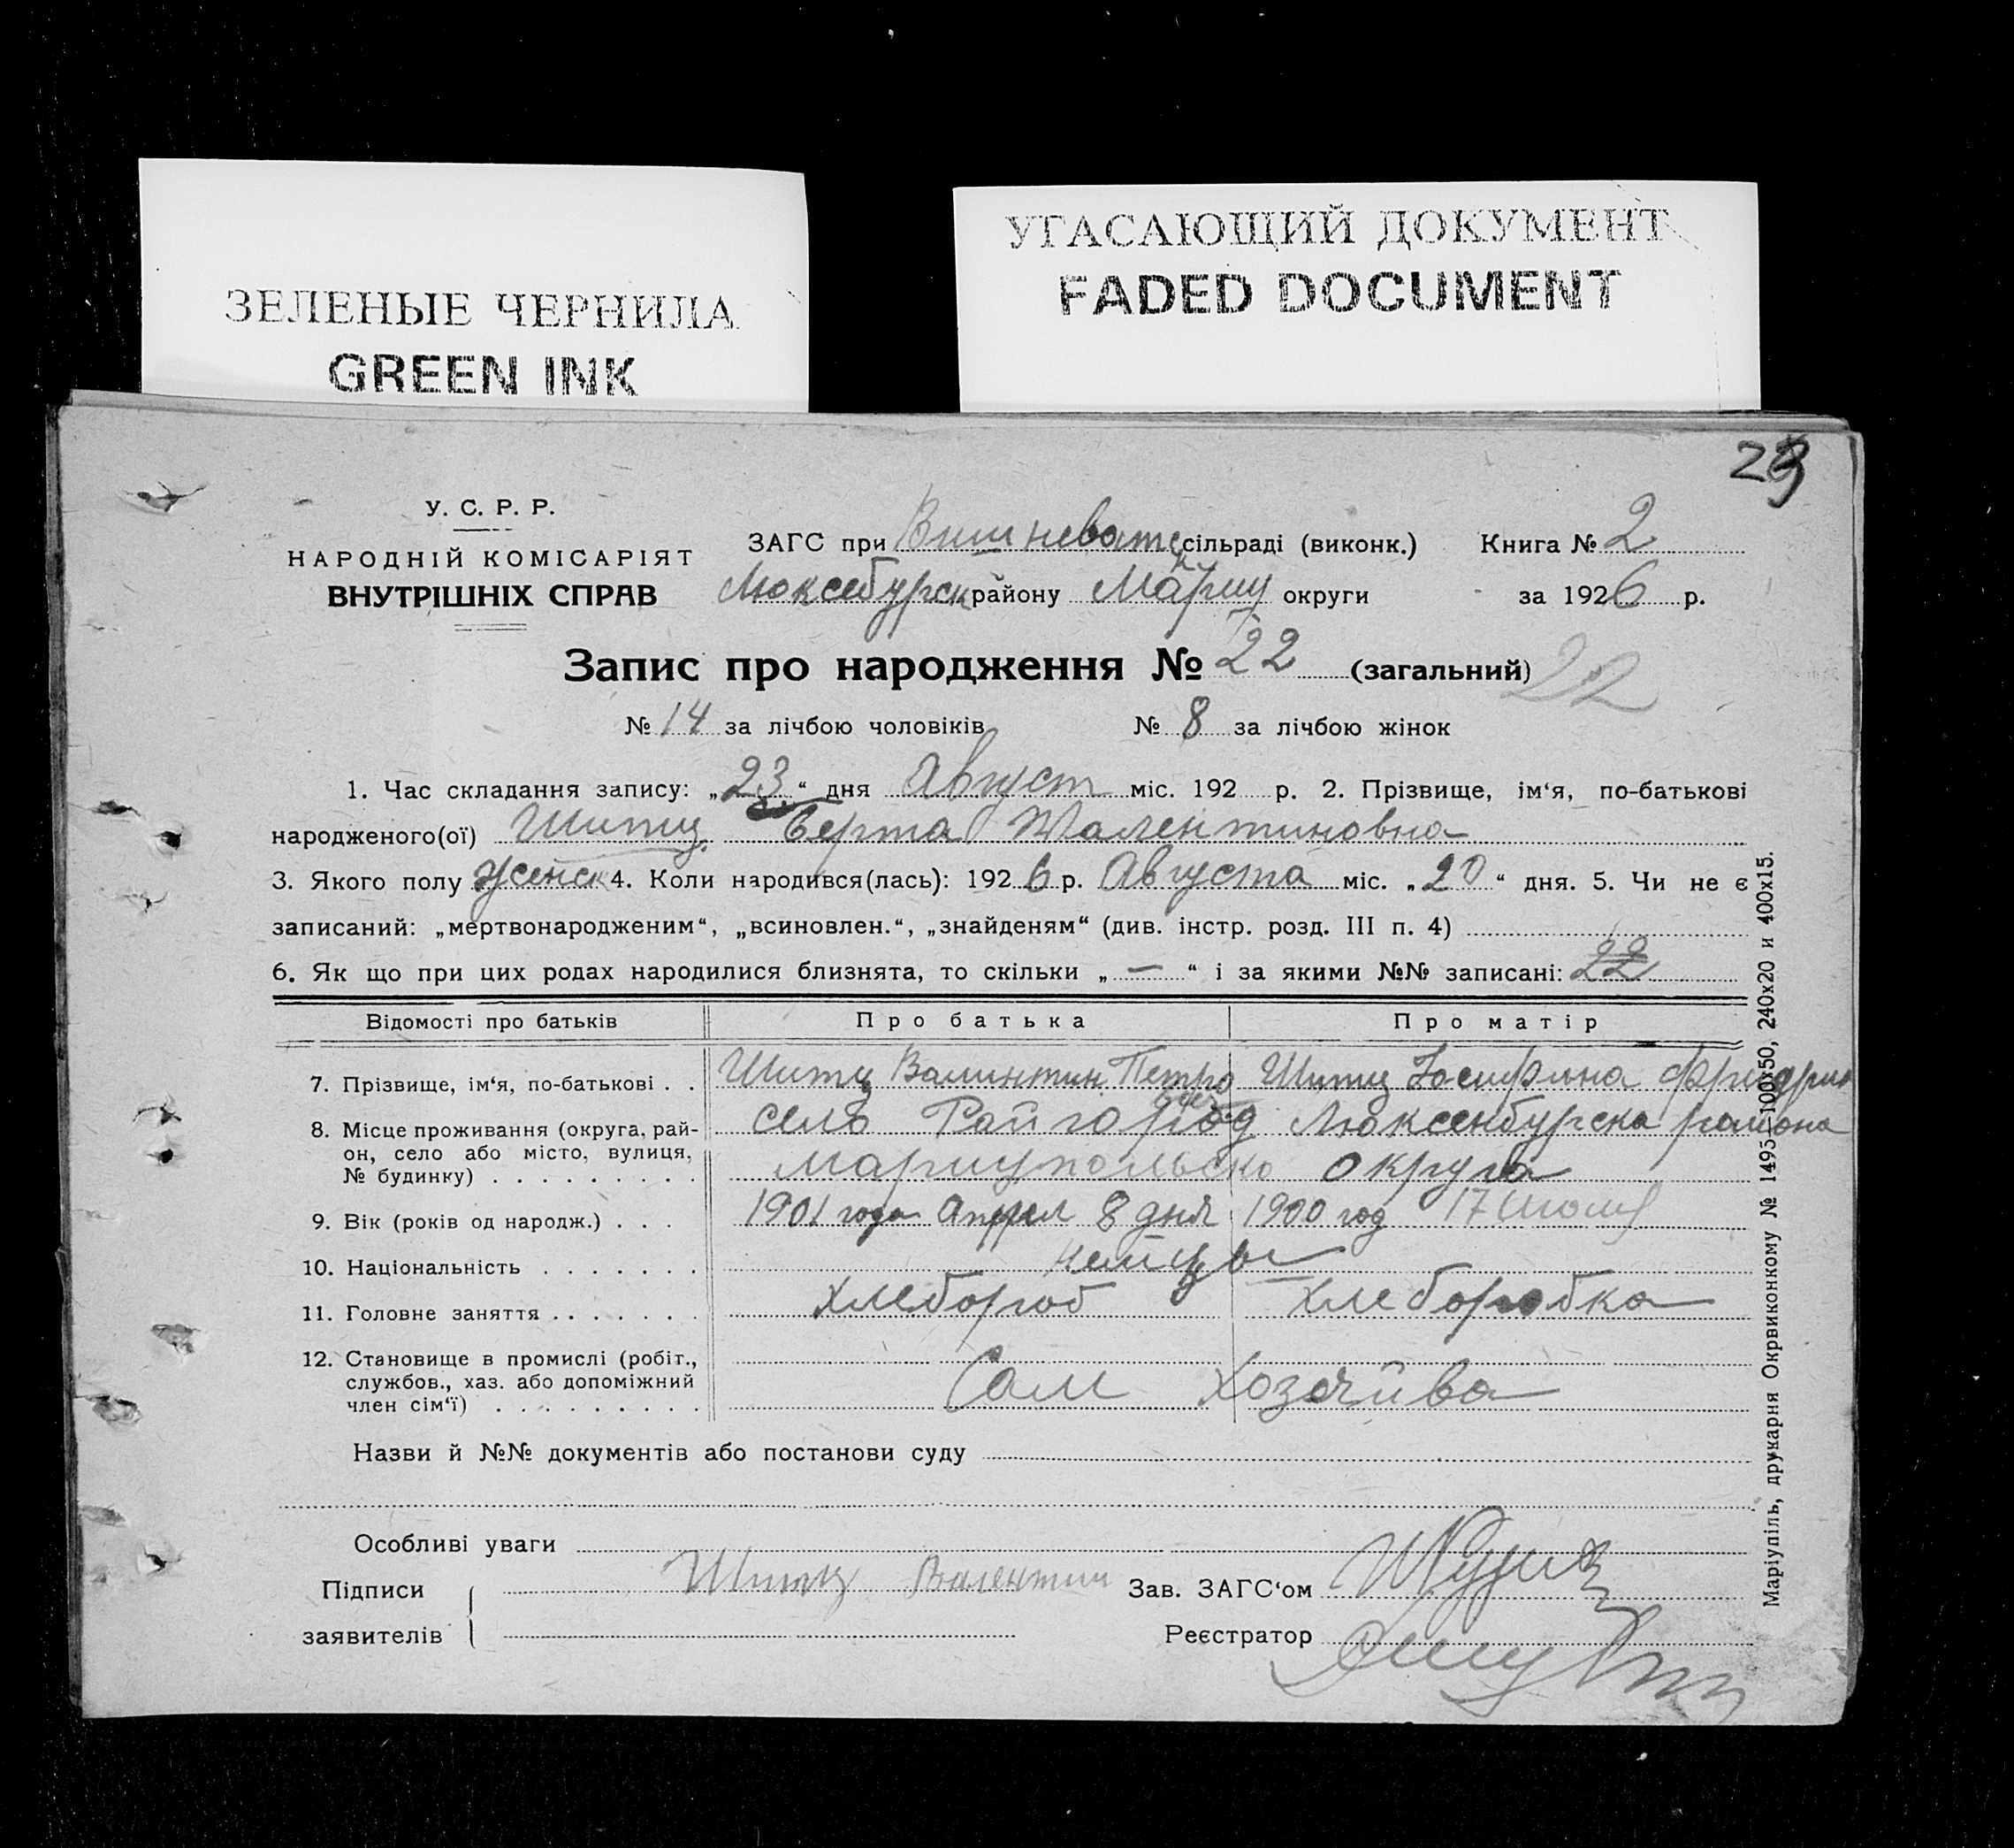 ЗЕЛЕНЫЕ ЧЕРНИЛА
GREEN INK
УГАСАЮЩИЙ ДОКУМЕНТ
FADED DOCUMENT
23
У. С. Р. Р.
НАРОДНІЙ КОМІСАРІЯТ
ВНУТРІШНІХ СПРАВ
ЗАГС при Вишневатск сільраді (виконк.) Книга № 2
Люксебургск району Мариу округи за 1926 р.
Запис про народження № 22 (загальний) 22
№ 14 за лічбою чоловіків № 8 за лічбою жінок
1. Час складання запису: „23“ дня Август міс. 192 р. 2. Прізвище, ім‘я, по-батькові
народженого(ої) Шитц Берта Валентиновна
3. Якого полу женск 4. Коли народився(лась): 1926 р. Августа міс. „20“ дня. 5. Чи не є
записаний: „мертвонародженим“, „всиновлен.“, „знайденям“ (див. інстр. розд. III п. 4)
6. Як що при цих родах народилися близнята, то скільки „—“ і за якими №№ записані: 22
Відомості про батьків Про батька Про матір
7. Прізвище, ім‘я, по-батькові . . Шитц Валинтин Петрович Шитц Юсифина Фридрих
8. Місце проживання (округа, рай-
он, село або місто, вулиця,
№ будинку) . . . . . . . . .
село Райгород Люксенбургска района
Мариупольско округа
9. Вік (років од народж.) . . . 1901 года Апрел 8 дня 1900 год 17 Июля
10. Національність . . . . . . . немцы
11. Головне заняття . . . . . . . хлебороб хлеборобка
12. Становище в промислі (робіт.,
службов., хаз. або допоміжний
член сім‘ї) . . . . . . . . .
Сам Хозяйва
Назви й №№ документів або постанови суду
Особливі уваги
Підписи Шитц Валентин Зав. ЗАГС‘ом
заявителів Реєстратор
Маріупіль, друкарня Окрвиконкому № 1495—100х50, 240х20 и 400х15.